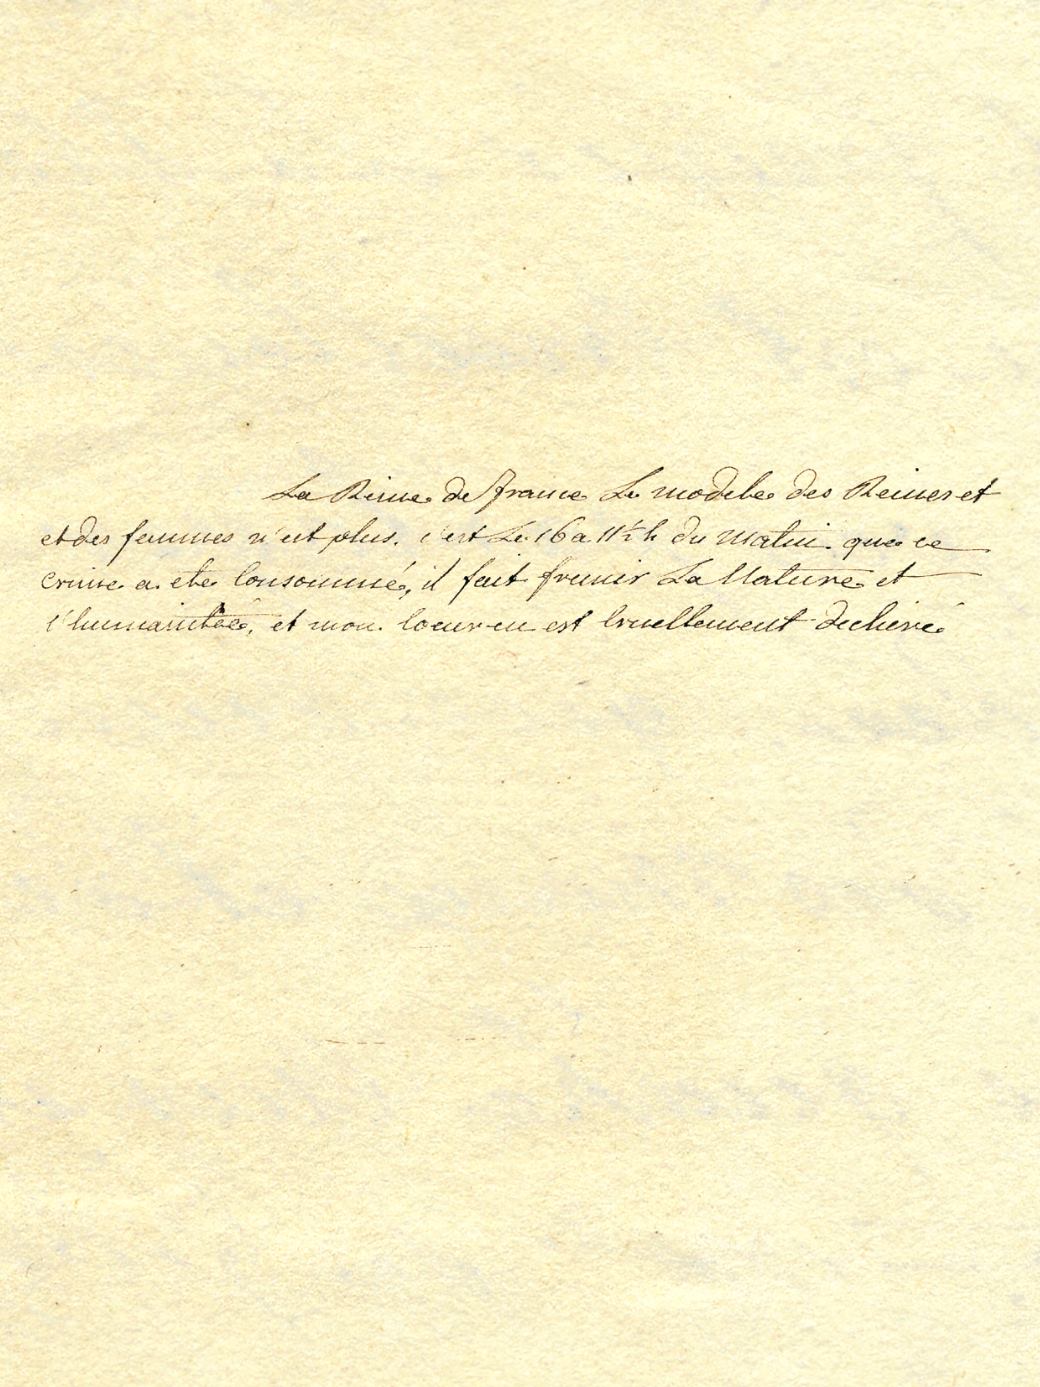 La Reine de france Le modele des Reines et
et des femmes n'est plus. c'est Le 16 a 11½ h du Matin que ce
crime a eté consommé, il fait fremir La Nature et
l'humanitée, et mon coeur en est cruellement dechiré